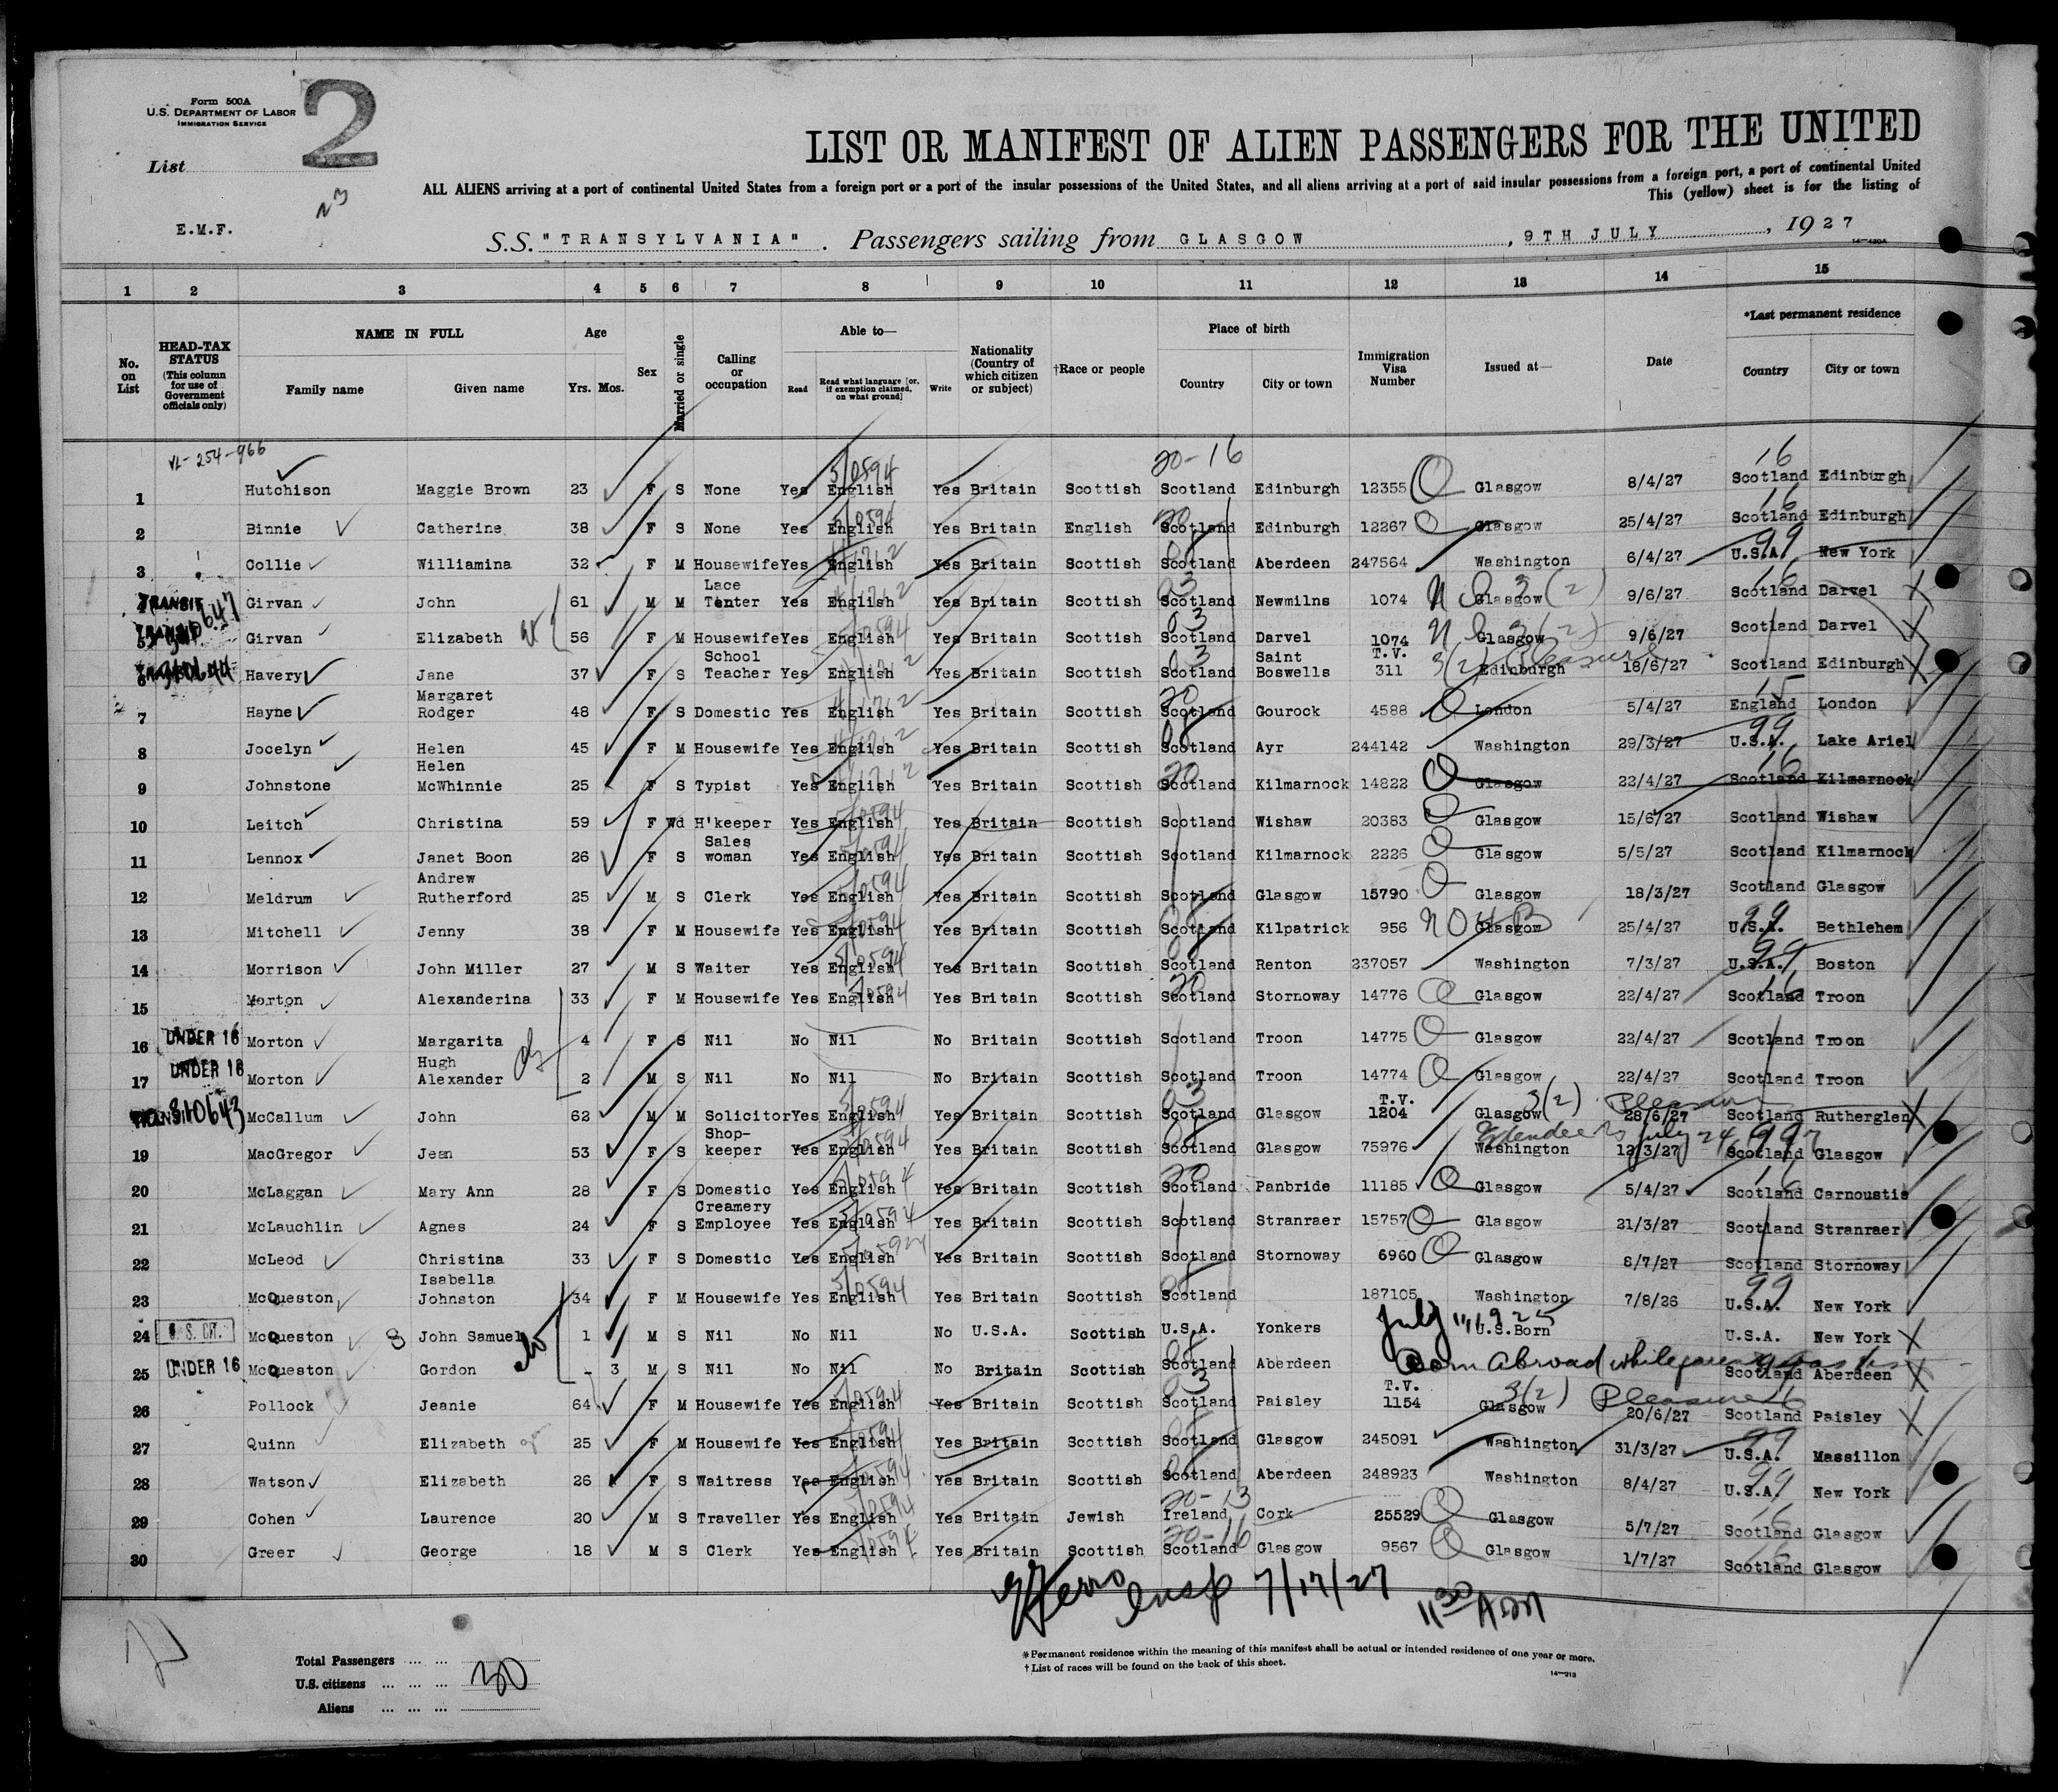 Form 500A
U.S. DEPARTMENT OF LABOR
IMMIGRATION SERVICE
2
List
LIST OR MANIFEST OF ALIEN PASSENGERS FOR THE UNITED
ALL ALIENS arriving at a port of continental United States from a foreign port or a port of the insular possessions of the United States, and all aliens arriving at a port of said insular possessions from a foreign port, a port of continental United
This (yellow) sheet is for the listing of
E.M.F.
S.S. "TRANSYLVANIA". Passengers sailing from GLASGOW, 9TH JULY, 1927
14—420A
1 2 3 4 5 6 7 8 9 10 11 12 13 14 15
No. on List
HEAD-TAX STATUS (This column for use of Government officials only)
NAME IN FULL
Family name Given name
Age
Yrs. Mos.
Sex
Married or single
Calling or occupation
Able to—
Read Read what language [or, if exemption claimed, on what ground] Write
Nationality (Country of which citizen or subject)
†Race or people
Place of birth
Country City or town
Immigration Visa Number
Issued at—
Date
*Last permanent residence
Country City or town
VL-254-966 5/0594 20-16 16
1 Hutchison Maggie Brown 23 F S None Yes English Yes Britain Scottish Scotland Edinburgh 12355 Glasgow 8/4/27 Scotland Edinburgh
2 Binnie Catherine 38 F S None Yes English Yes Britain English Scotland Edinburgh 12267 Glasgow 25/4/27 Scotland Edinburgh
3 Collie Williamina 32 F M Housewife Yes English Yes Britain Scottish Scotland Aberdeen 247564 Washington 6/4/27 U.S.A. New York
4 TRANSIT Girvan John 61 M M Lace Tenter Yes English Yes Britain Scottish Scotland Newmilns 1074 Glasgow 3(2) 9/6/27 Scotland Darvel
5 TRANSIT Girvan Elizabeth 56 F M Housewife Yes English Yes Britain Scottish Scotland Darvel 1074 Glasgow 3(2) 9/6/27 Scotland Darvel
6 TRANSIT Havery Jane 37 F S School Teacher Yes English Yes Britain Scottish Scotland Saint Boswells T.V. 311 3(2) Pleasure Edinburgh 18/6/27 Scotland Edinburgh
7 Hayne Margaret Rodger 48 F S Domestic Yes English Yes Britain Scottish Scotland Gourock 4588 London 5/4/27 England London
8 Jocelyn Helen 45 F M Housewife Yes English Yes Britain Scottish Scotland Ayr 244142 Washington 29/3/27 U.S.A. Lake Ariel
9 Johnstone Helen McWhinnie 25 F S Typist Yes English Yes Britain Scottish Scotland Kilmarnock 14822 Glasgow 22/4/27 Scotland Kilmarnock
10 Leitch Christina 59 F Wd H'keeper Yes English Yes Britain Scottish Scotland Wishaw 20383 Glasgow 15/6/27 Scotland Wishaw
11 Lennox Janet Boon 26 F S Sales woman Yes English Yes Britain Scottish Scotland Kilmarnock 2226 Glasgow 5/5/27 Scotland Kilmarnock
12 Meldrum Andrew Rutherford 25 M S Clerk Yes English Yes Britain Scottish Scotland Glasgow 15790 Glasgow 18/3/27 Scotland Glasgow
13 Mitchell Jenny 38 F M Housewife Yes English Yes Britain Scottish Scotland Kilpatrick 956 Glasgow 25/4/27 U.S.A. Bethlehem
14 Morrison John Miller 27 M S Waiter Yes English Yes Britain Scottish Scotland Renton 237057 Washington 7/3/27 U.S.A. Boston
15 Morton Alexanderina 33 F M Housewife Yes English Yes Britain Scottish Scotland Stornoway 14776 Glasgow 22/4/27 Scotland Troon
16 UNDER 16 Morton Margarita 4 F S Nil No Nil No Britain Scottish Scotland Troon 14775 Glasgow 22/4/27 Scotland Troon
17 UNDER 16 Morton Hugh Alexander 2 M S Nil No Nil No Britain Scottish Scotland Troon 14774 Glasgow 22/4/27 Scotland Troon
TRANSIT 310643 McCallum John 62 M M Solicitor Yes English Yes Britain Scottish Scotland Glasgow T.V. 1204 Glasgow 3(2) Pleasure 28/6/27 Scotland Rutherglen
19 MacGregor Jean 53 F S Shop-keeper Yes English Yes Britain Scottish Scotland Glasgow 75976 Washington 12/3/27 Scotland Glasgow
20 McLaggan Mary Ann 28 F S Domestic Yes English Yes Britain Scottish Scotland Panbride 11185 Glasgow 5/4/27 Scotland Carnoustie
21 McLauchlin Agnes 24 F S Creamery Employee Yes English Yes Britain Scottish Scotland Stranraer 15757 Glasgow 21/3/27 Scotland Stranraer
22 McLeod Christina 33 F S Domestic Yes English Yes Britain Scottish Scotland Stornoway 6960 Glasgow 8/7/27 Scotland Stornoway
23 McQueston Isabella Johnston 34 F M Housewife Yes English Yes Britain Scottish Scotland 187105 Washington 7/8/26 U.S.A. New York
24 U.S. CIT. McQueston John Samuel 1 M S Nil No Nil No U.S.A. Scottish U.S.A. Yonkers July 11, 1925 U.S.Born U.S.A. New York
25 UNDER 16 McQueston Gordon - 3 M S Nil No Nil No Britain Scottish Scotland Aberdeen Born Abroad while Scotland Aberdeen
26 Pollock Jeanie 64 F M Housewife Yes English Yes Britain Scottish Scotland Paisley T.V. 1154 Glasgow 3(2) Pleasure 20/6/27 Scotland Paisley
27 Quinn Elizabeth 25 F M Housewife Yes English Yes Britain Scottish Scotland Glasgow 245091 Washington 31/3/27 U.S.A. Massillon
28 Watson Elizabeth 26 F S Waitress Yes English Yes Britain Scottish Scotland Aberdeen 248923 Washington 8/4/27 U.S.A. New York
29 Cohen Laurence 20 M S Traveller Yes English Yes Britain Jewish Ireland Cork 25529 Glasgow 5/7/27 Scotland Glasgow
30 Greer George 18 M S Clerk Yes English Yes Britain Scottish Scotland Glasgow 9567 Glasgow 1/7/27 Scotland Glasgow
Insp 7/17/27 11 30 AM
*Permanent residence within the meaning of this manifest shall be actual or intended residence of one year or more.
†List of races will be found on the back of this sheet.
14—213
Total Passengers
U.S. citizens 30
Aliens